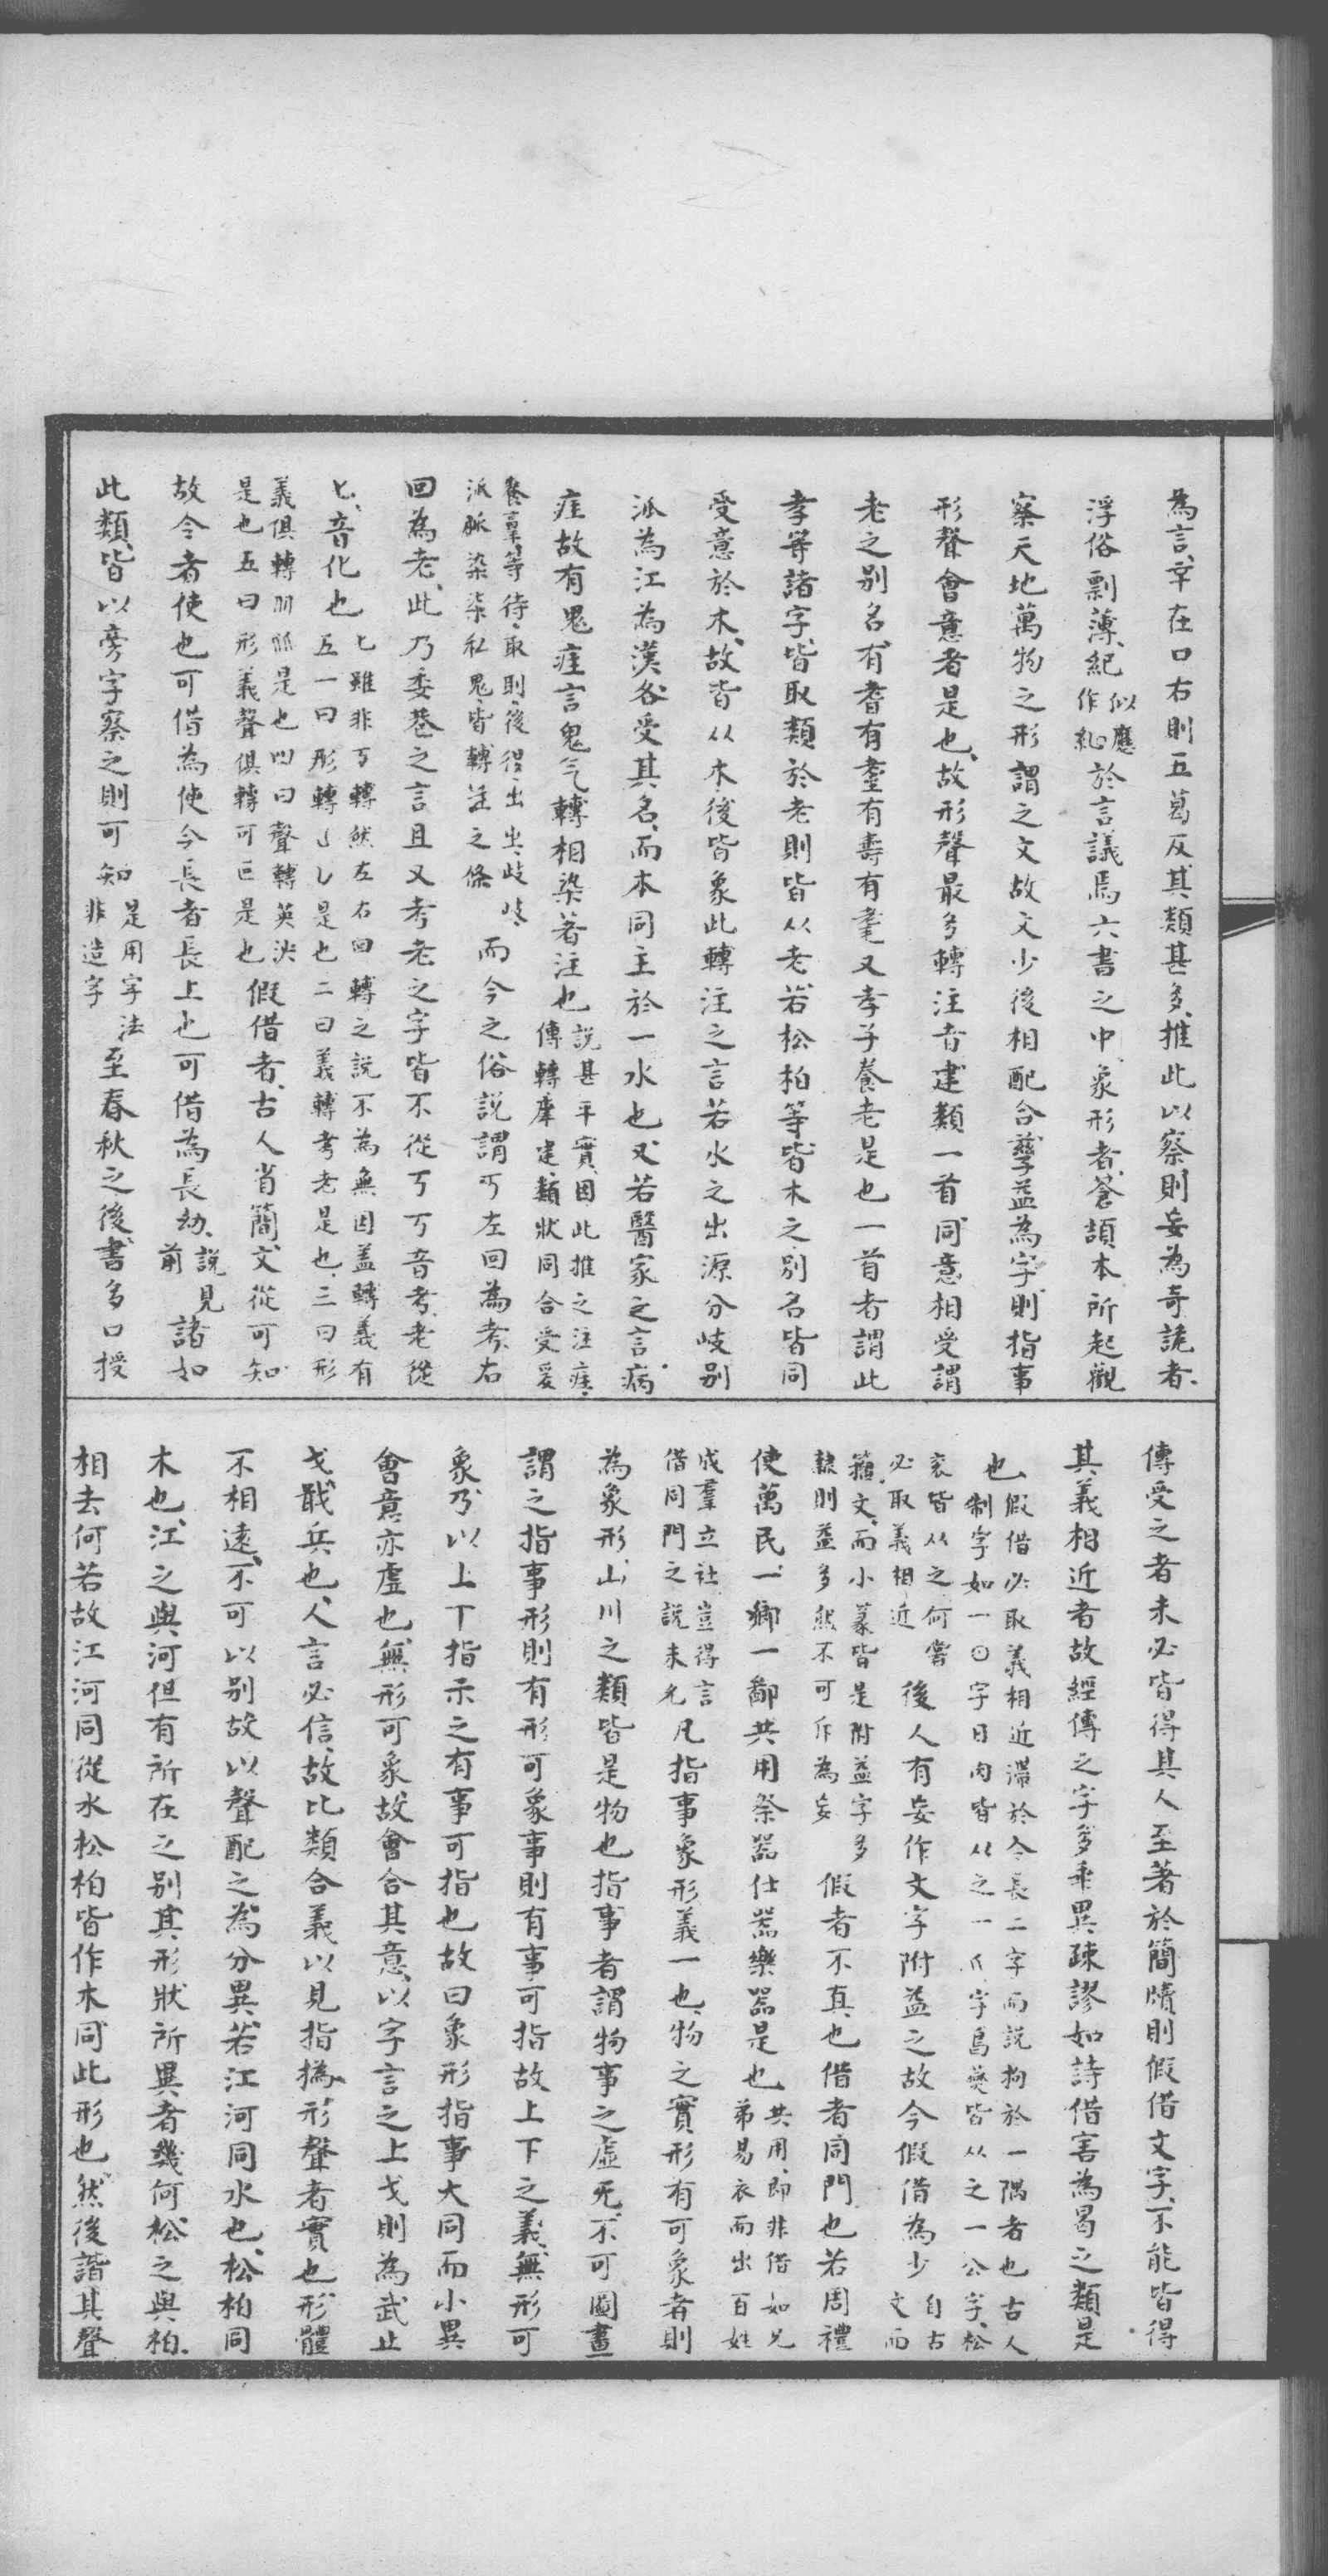 為言䇂在口右則五葛反其類甚多推此以察則妄為奇詭者
浮俗剽薄紀似應作紕於言議焉六書之中象形者蒼頡本所起觀
察天地萬物之形謂之文故文少後相配合孳益為字則指事
形聲會意者是也故形聲最多轉注者建類一首同意相受謂
老之別名有耆有耋有壽有耄又孝子養老是也一首者謂此
孝等諸字皆取類於老則皆从老若松柏等皆木之別名皆同
受意於木故皆从木後皆象此轉注之言若水之出源分岐別
派為江為漢各受其名而本同主於一水也又若醫家之言病
疰故有鬼疰言鬼气轉相染著注也說甚平實因此推之注疰
傳轉犘建類狀同合受爰
養稾等待取則後得出出歧歧
派脈染柒私鬼皆轉注之條而今之俗說謂丂左回為考右
回為老此乃委巷之言且又考老之字皆不從丂丂音考老從
匕音化也匕雖非丂轉然左右回轉之說不為無因蓋轉義有
五一曰形轉是也二曰義轉考老是也三曰形
義俱轉是也四曰聲轉英泱
是也五曰形義聲俱轉可叵是也假借者古人省簡文從可知
故令者使也可借為使令長者長上也可借為長幼說見前諸如
此類皆以旁字察之則可知是用字法非造字至春秋之後書多口授
傳受之者未必皆得其人至著於簡牘則假借文字不能皆得
其義相近者故經傳之字多乖異疎謬如詩借害為曷之類是
也假借必取義相近滯於令長二字而說拘於一隅者也古人
制字如一⊙字日肉皆从之一爪字為𤓽皆从之一公字松
衮皆从之何嘗
必取義相近後人有妄作文字附益之故今假借為少自古
文而
籀文而小篆皆是附益字多
隸則益多然不可斥為妄假者不真也借者同門也若周禮
使萬民一鄉一鄙共用祭器仕器樂器是也共用即非借如兄
弟易衣而出百姓
成羣立社豈得言
借同門之說未允凡指事象形義一也物之實形有可象者則
為象形山川之類皆是物也指事者謂物事之虛旡不可圖畫
謂之指事形則有形可象事則有事可指故上下之義無形可
象乃以上丅指示之有事可指也故曰象形指事大同而小異
會意亦虛也無形可象故會合其意以字言之上戈則為武止
戈戢兵也人言必信故比類合義以見指撝形聲者實也形體
不相遠不可以別故以聲配之為分異若江河同水也松柏同
木也江之與河但有所在之別其形狀所異者幾何松之與柏
相去何若故江河同從水松柏皆作木同此形也然後諧其聲